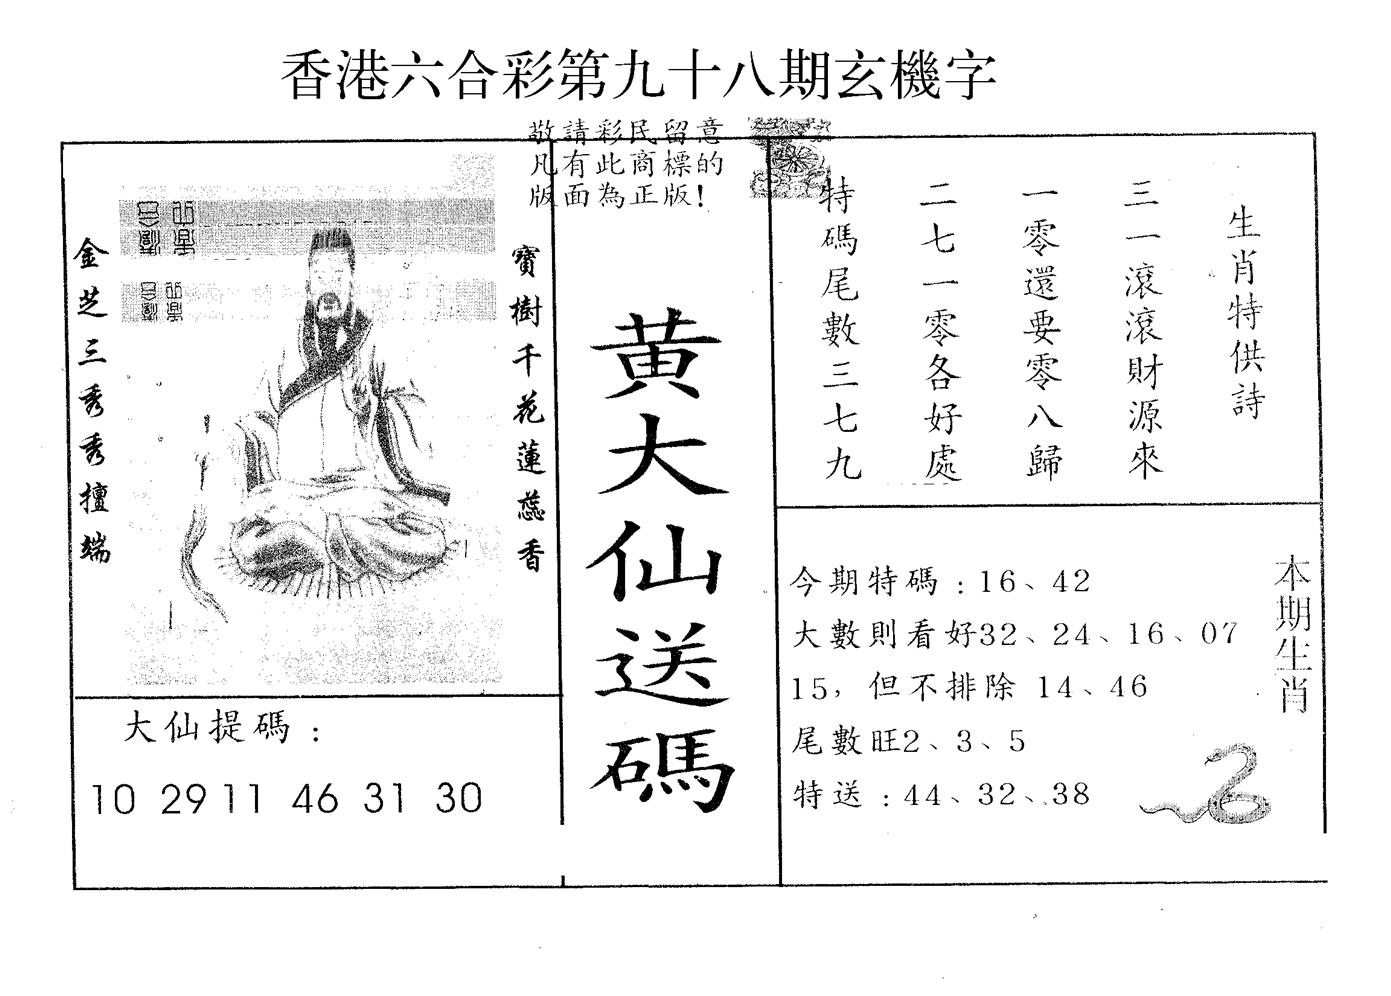 香港六合彩第九十八期玄機字
敬請彩民留意
凡有此商標的
版面為正版!
寶樹千花蓮蕊香
金芝三秀秀擅端
大仙提碼：
10 29 11 46 31 30
黃大仙送碼
生肖特供詩
三一滾滾財源來
一零還要零八歸
二七一零各好處
特碼尾數三七九
本期生肖
今期特碼：16、42
大數則看好32、24、16、07
15，但不排除 14、46
尾數旺2、3、5
特送：44、32、38